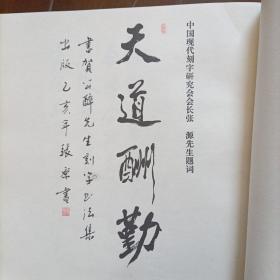 中国现代刻字研究会会长张 源先生题词
天道酬勤
书贺公醉先生刻字书法集
出版 乙亥年 张源书